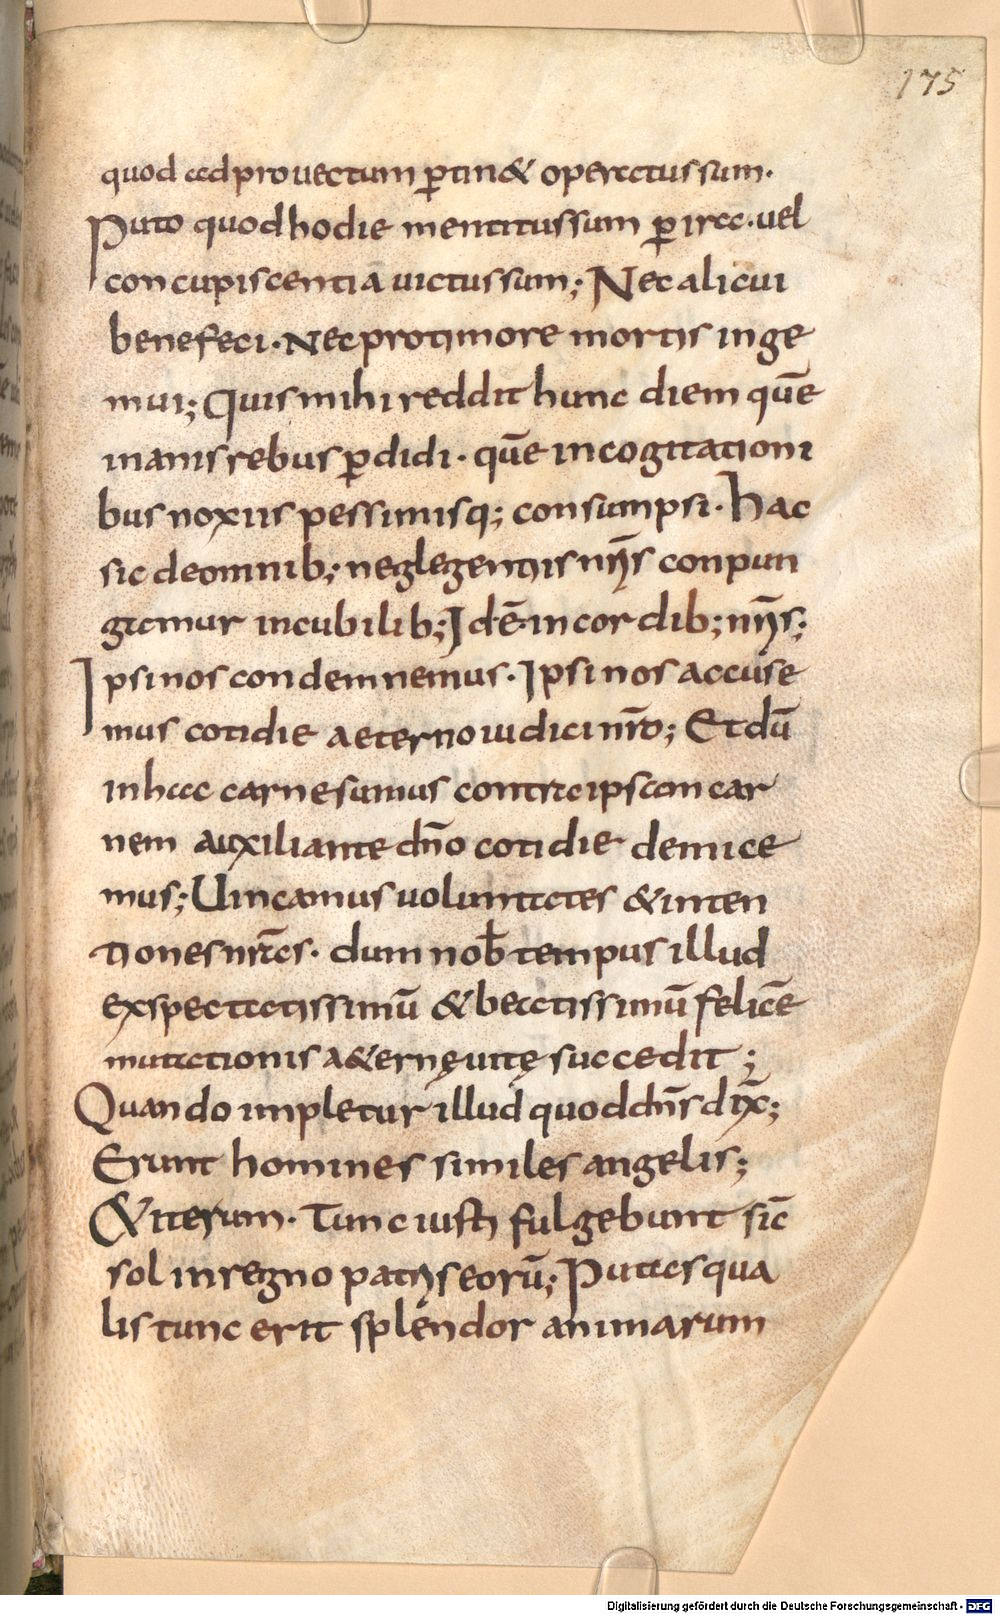 175
quod ad prouectum p̄tin& operatus sum.
Puto quod hodie mentitus sum p̄ ira. uel
concupiscentia uictus sum; Nec alicui
benefeci. Nec pro timore mortis inge
mui; Quis mihi reddit hunc diem quē
inanis rebus p̄didi. quē in cogitationi
bus noxiis pessimisq; consumpsi. hac
sic de omnib; neglegentiis nr̄is conpun
gamur in cubilib; Id ē in cordib; nr̄is;
Ipsi nos condemnemus. Ipsi nos accuse
mus cotidie aeterno iudici nr̄o; Et dū
in hac carne sumus contra ipsam car
nem auxiliante dn̄o cotidie demice
mus; Uincamus uoluntates & inten
tiones nr̄as. dum nob̄ tempus illud
exspectatissimū & beatissimū felicē
mutationis a&ernę uitę succedit;
Quando impletur illud quod dn̄s dix̄;
Erunt homines similes angelis;
& iterum. Tunc iusti fulgebunt sic̄
sol in regno patris eorū; Putas qua
lis tunc erit splendor animarum
Digitalisierung gefördert durch die Deutsche Forschungsgemeinschaft - DFG